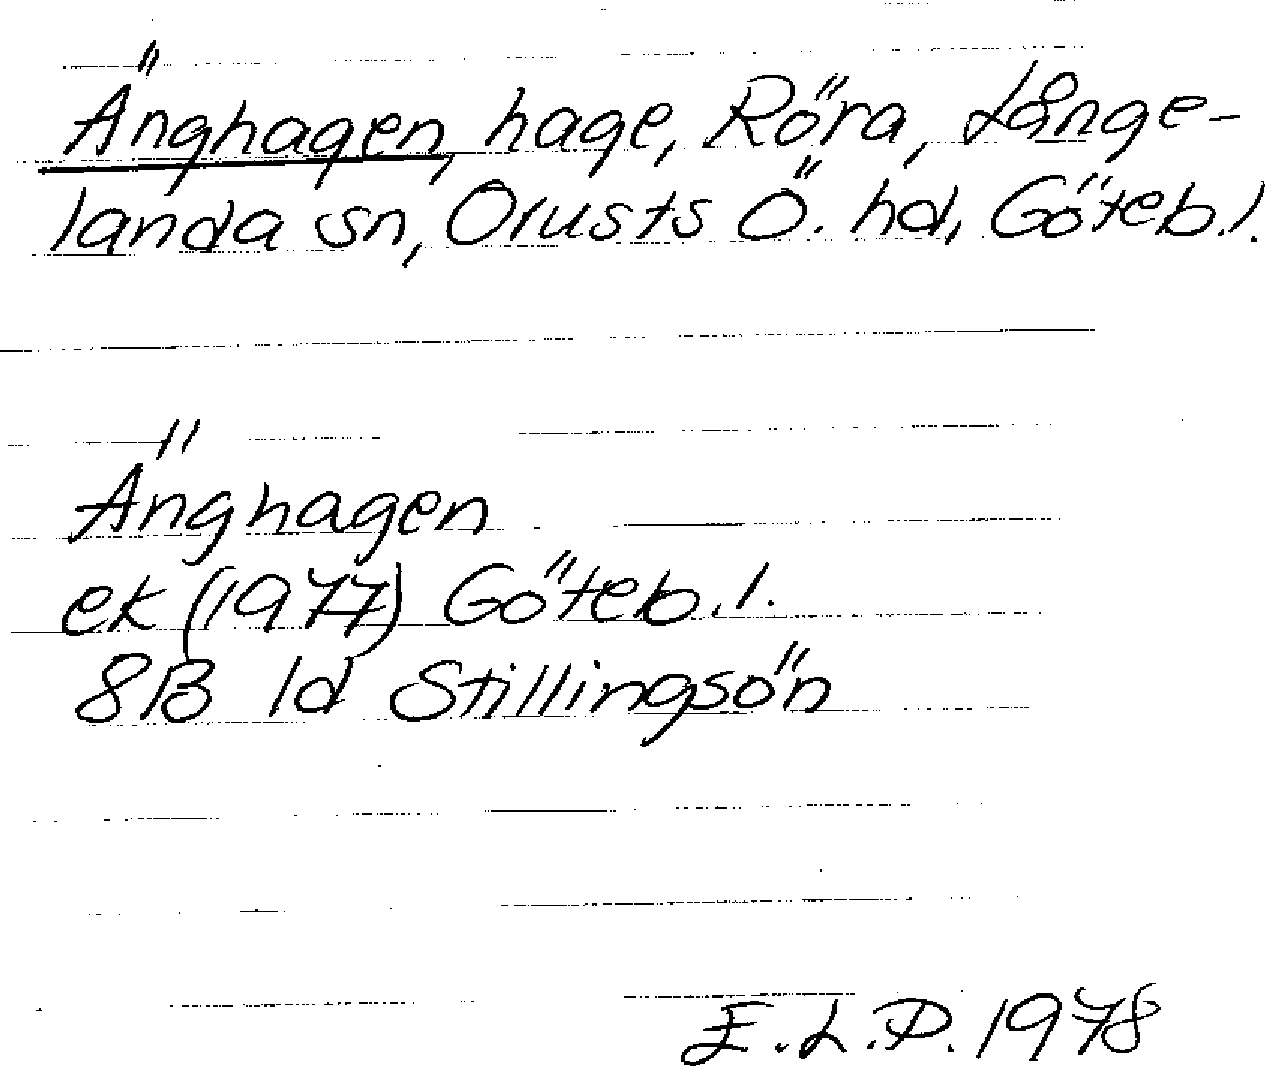 Änghagen, hage, Röra, Långe-
landa sn, Orusts Ö. hd, Göteb. l.
Änghagen
ek (1977) Göteb. l.
8B 1d Stillingsön
E.L.P. 1978